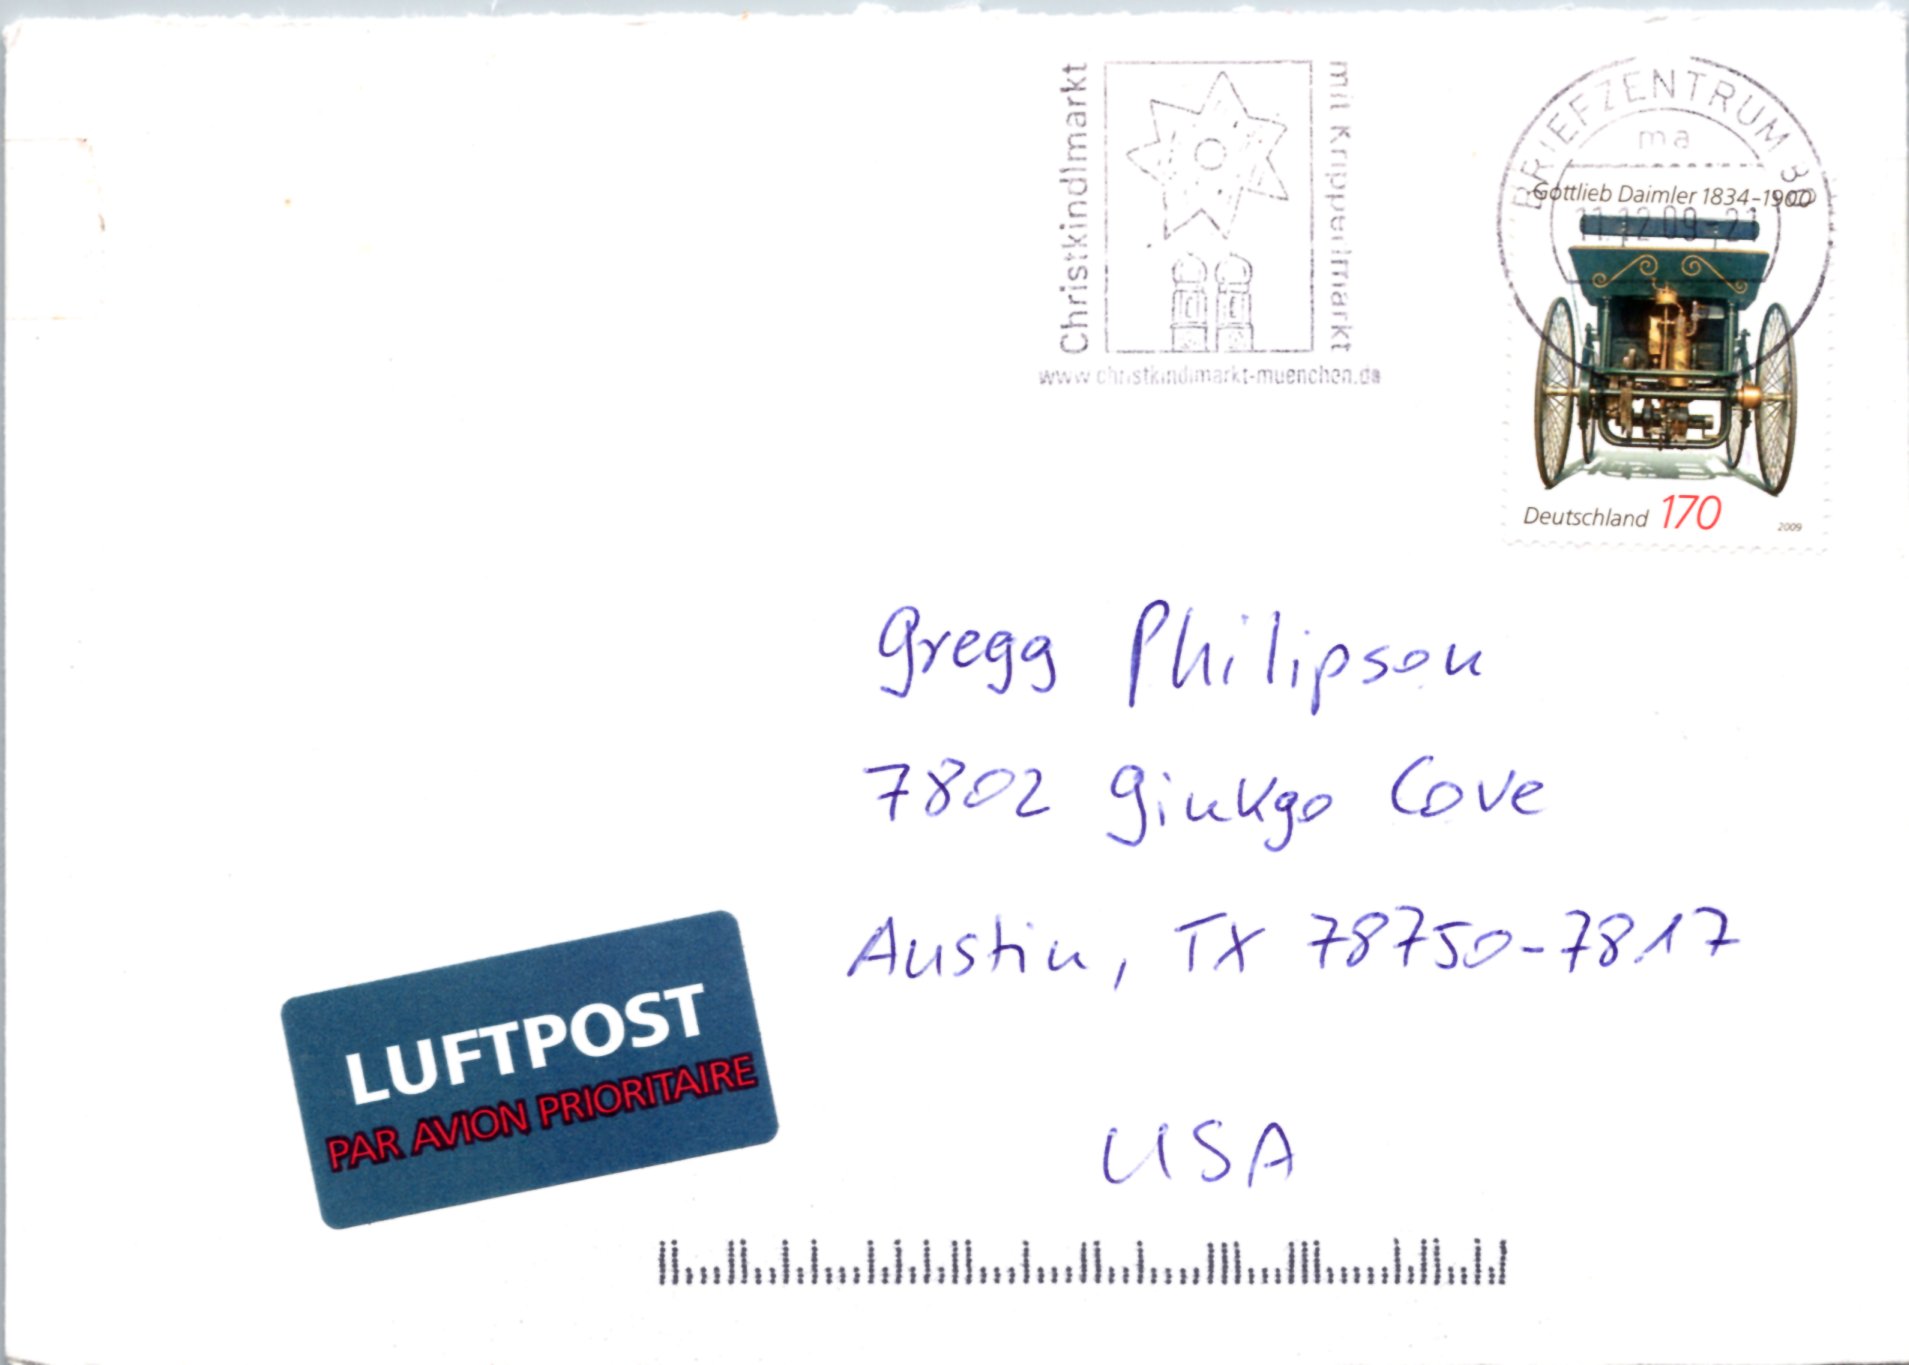 Christkindlmarkt
mit Kripperlmarkt
www.christkindlmarkt-muenchen.de
BRIEFZENTRUM 80
ma
11.12.09-21
Gottlieb Daimler 1834-1900
Deutschland 170
2009
Gregg Philipson
7802 Ginkgo Cove
Austin, TX 78750-7817
USA
LUFTPOST
PAR AVION PRIORITAIRE